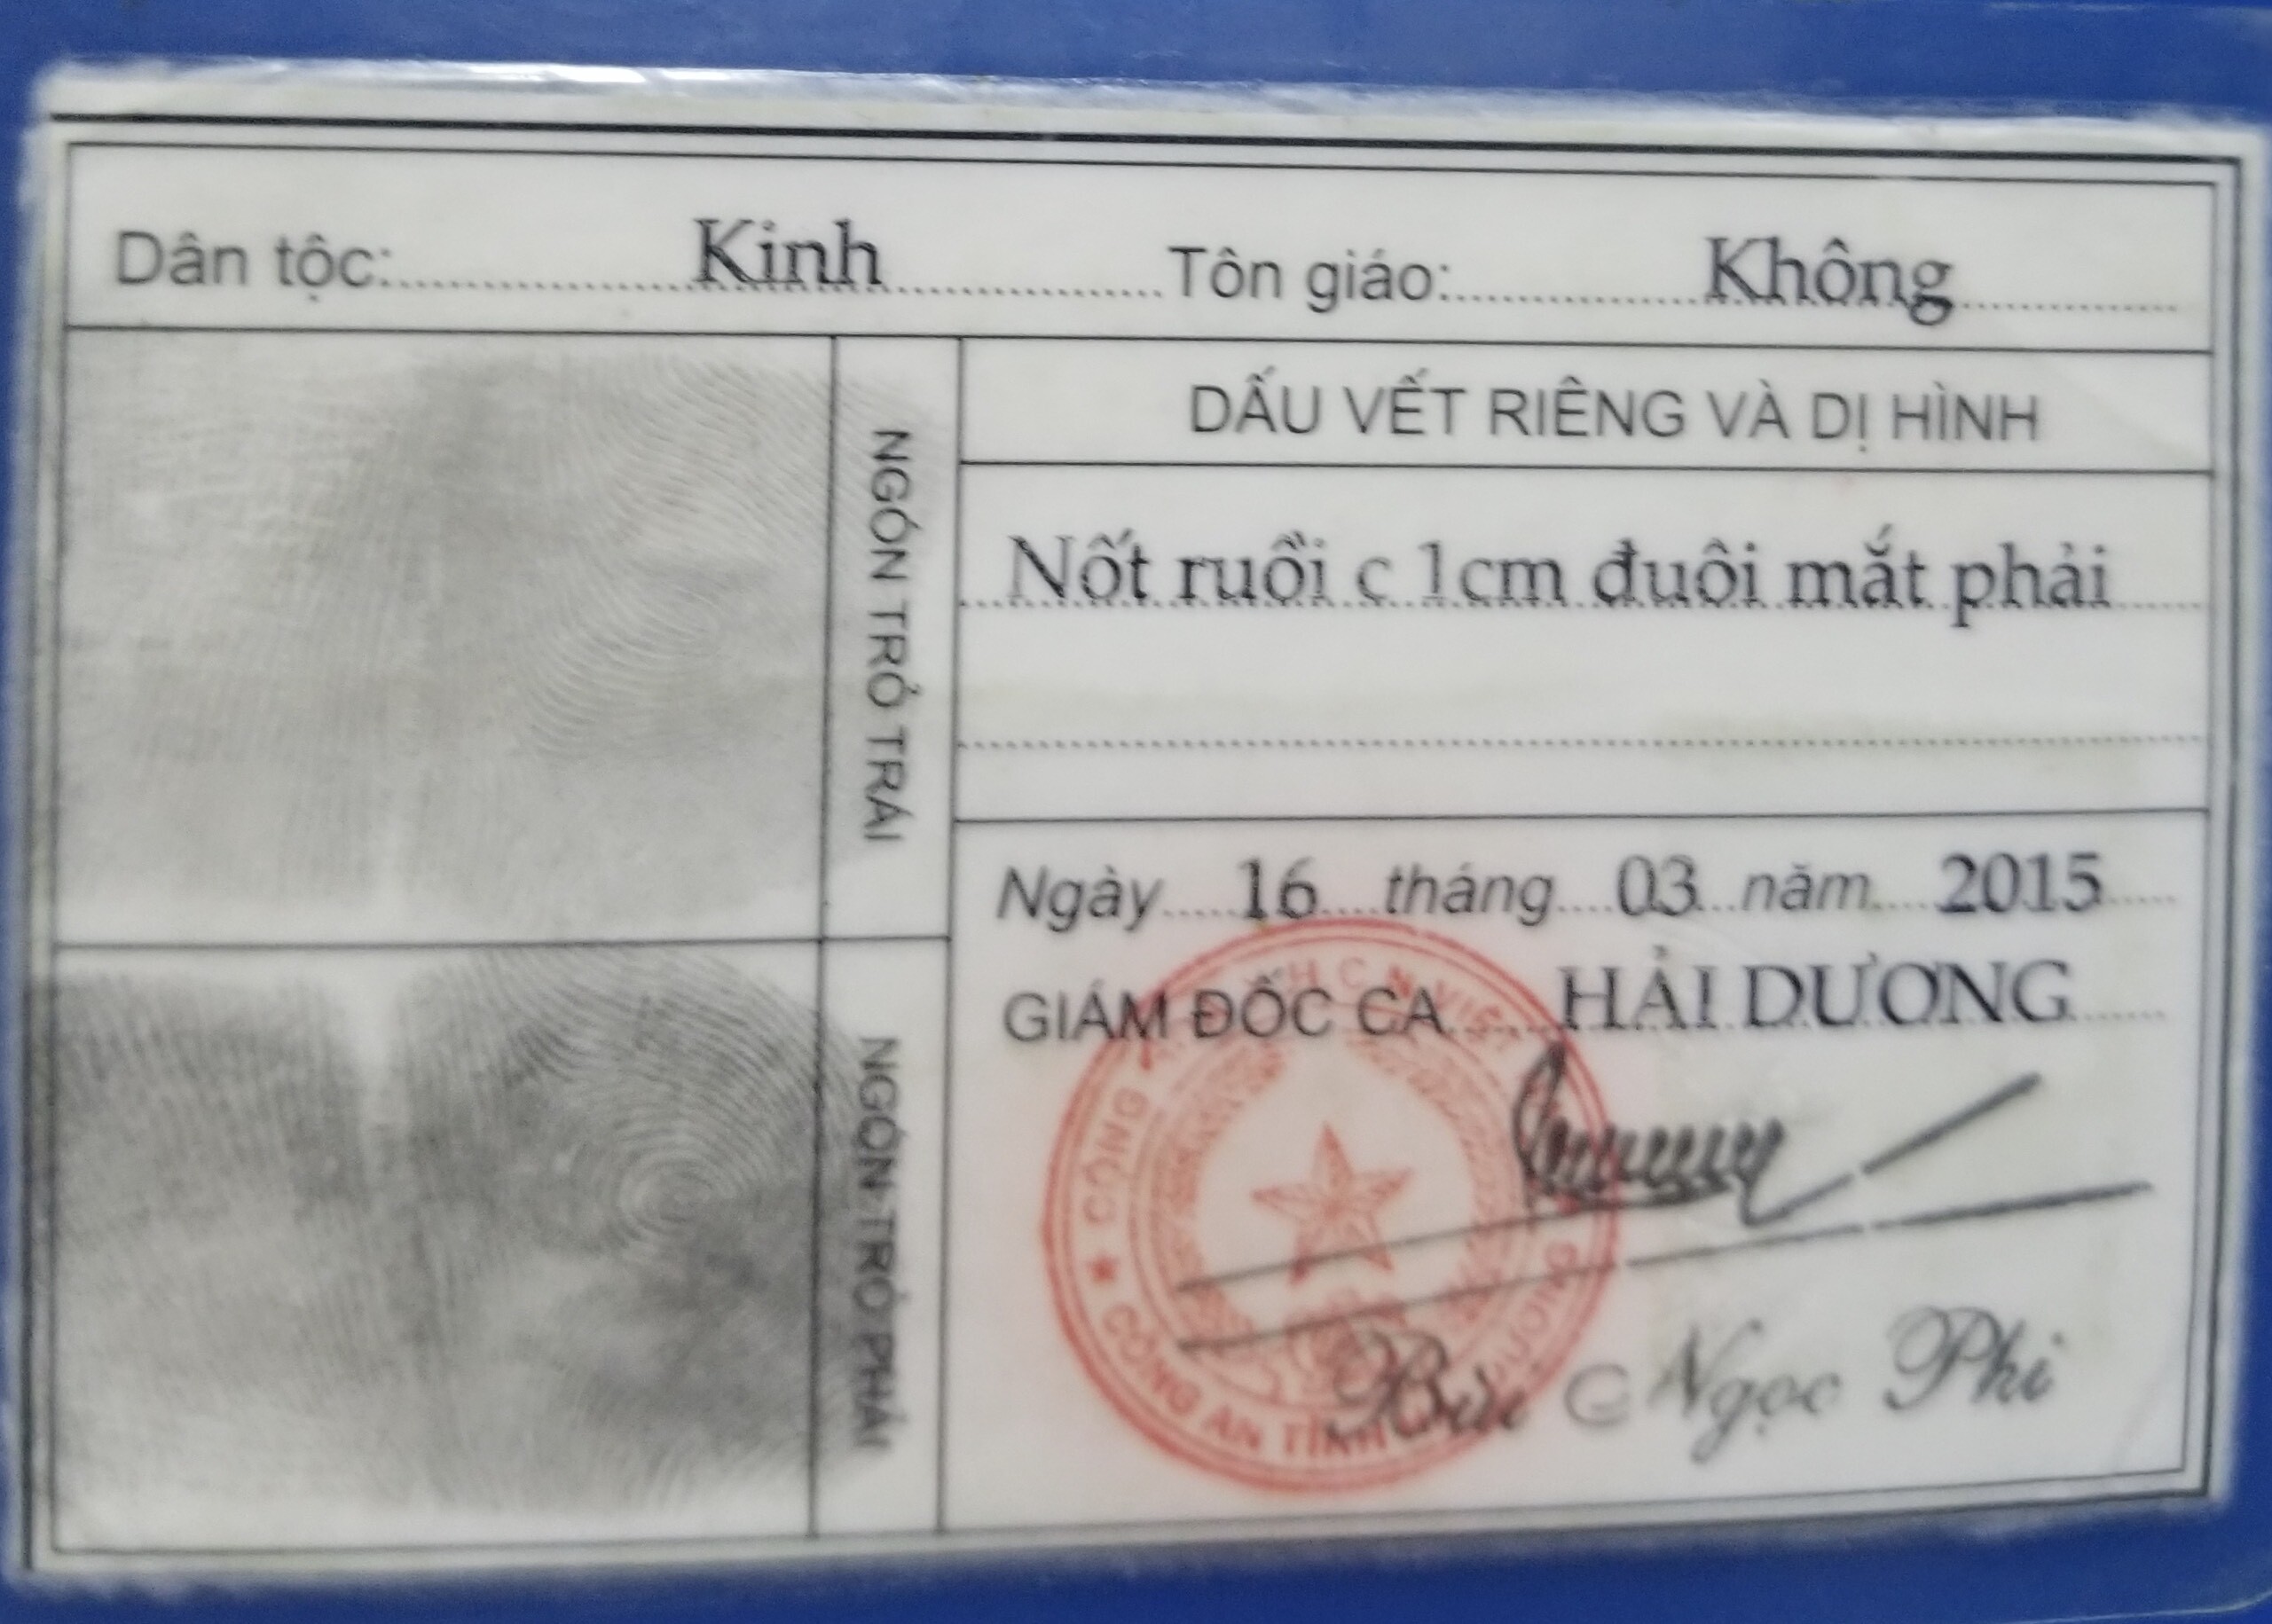 Dân tộc: Kinh Tôn giáo: Không
NGÓN TRỎ TRÁI
DẤU VẾT RIÊNG VÀ DỊ HÌNH
Nốt ruồi c 1cm đuôi mắt phải
NGÓN TRỎ PHẢI
Ngày 16 tháng 03 năm 2015
GIÁM ĐỐC CA HẢI DƯƠNG
CÔNG AN TỈNH
Bùi Ngọc Phi